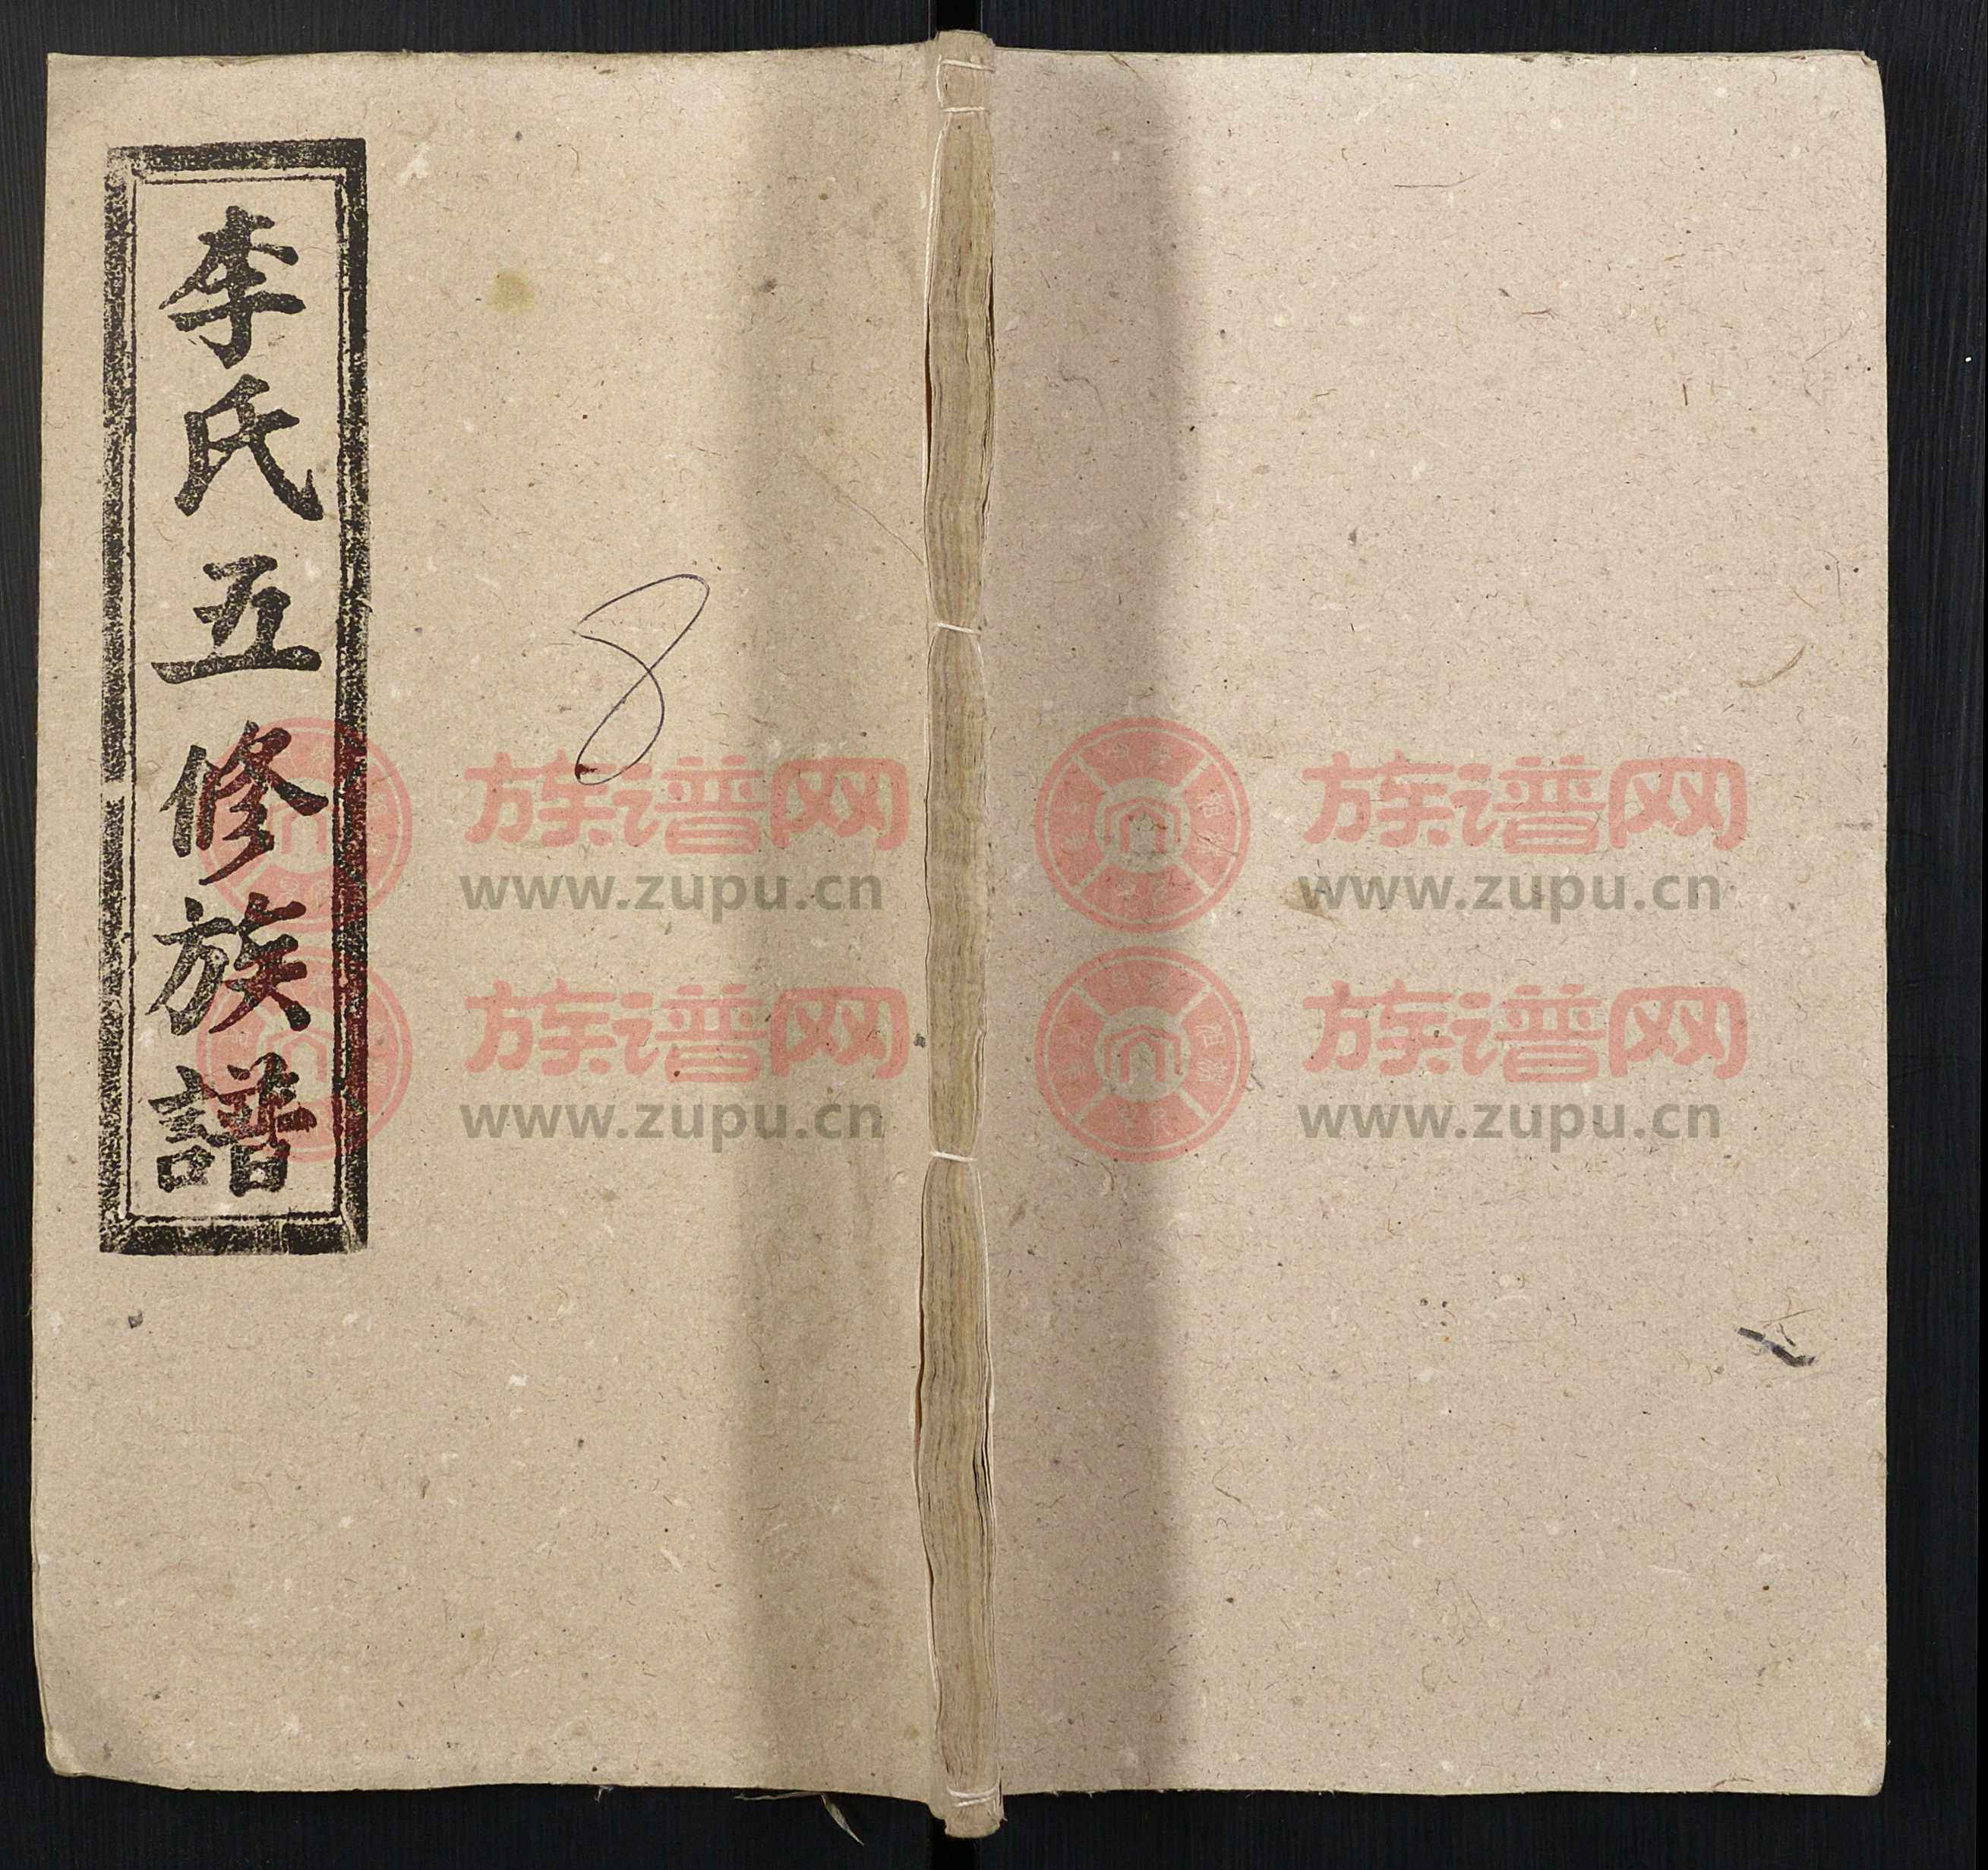 李氏五修族譜
8
族谱网
www.zupu.cn
族谱网
www.zupu.cn
族谱网
www.zupu.cn
族谱网
www.zupu.cn